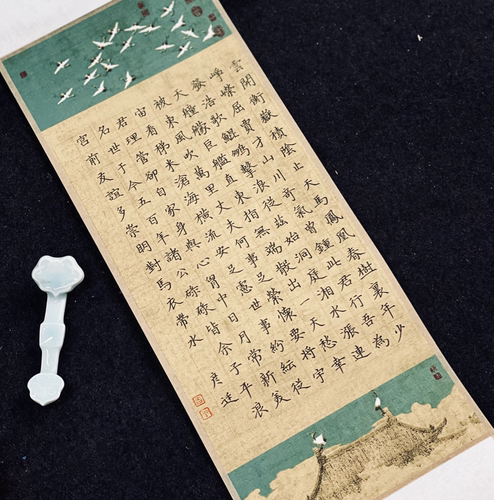 雲開衡嶽積陰止天馬鳳凰春樹裏年少
崢嶸屈賈才山川奇氣曾鍾此君行吾為
發浩歌鯤鵬擊浪從茲始洞庭湘水漲連
天艟艨巨艦直東指無端散出一天愁幸
被東風吹萬里丈夫何事足縈懷要將宇
宙看稊米滄海橫流安足慮世事紛紜從
君理管卻自家身與心胸中日月常新美
名世于今五百年諸公碌碌皆余子平浪
宮前友誼多崇明對馬衣帶水